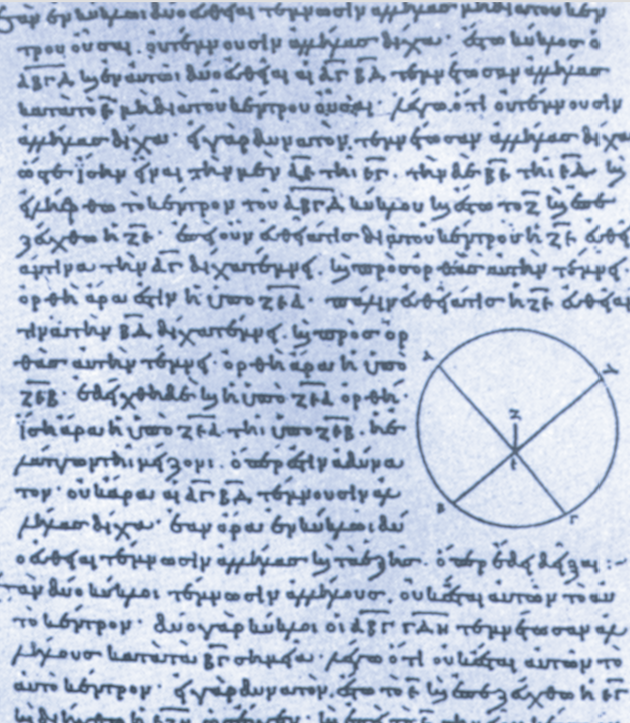 Ἐὰν ἐν κύκλωι δύο εὐθεῖαι τέμνωσιν ἀλλήλας μὴ διὰ τοῦ κέν
τρου οὖσαι. οὐ τέμνουσιν ἀλλήλας δίχα· ἔστω κύκλος ὁ
ΑΒΓΔ καὶ ἐν αὐτῶι δύο εὐθεῖαι αἱ ΑΓ ΒΔ τεμνέτωσαν ἀλλήλας
κατὰ τὸ Ε μὴ διὰ τοῦ κέντρου οὖσαι· λέγω ὅτι οὐ τέμνουσιν
ἀλλήλας δίχα· εἰ γὰρ δυνατὸν. τεμνέτωσαν ἀλλήλας δίχα
ὥστε ἴσην εἶναι τὴν μὲν ΑΕ τῆι ΕΓ. τὴν δὲ ΒΕ τῆι ΕΔ καὶ
εἰλήφθω τὸ κέντρον τοῦ ΑΒΓΔ κύκλου καὶ ἔστω τὸ Ζ καὶ ἐπε
ζεύχθω ἡ ΖΕ· ἐπεὶ οὖν εὐθεῖά τις διὰ τοῦ κέντρου ἡ ΖΕ εὐθεῖ
άν τινα τὴν ΑΓ δίχα τέμνει. καὶ πρὸς ὀρθὰς αὐτὴν τέμνει·
ὀρθὴ ἄρα ἐστὶν ἡ ὑπὸ ΖΕΑ· πάλιν ἐπεὶ εὐθεῖά τις ἡ ΖΕ εὐθεῖά
τινα τὴν ΒΔ δίχα τέμνει. καὶ πρὸς ὀρ
θὰς αὐτὴν τέμνει· ὀρθὴ ἄρα ἡ ὑπὸ
ΖΕΒ· ἐδείχθη δὲ καὶ ἡ ὑπὸ ΖΕΑ ὀρθὴ·
ἴση ἄρα ἡ ὑπὸ ΖΕΑ τῆι ὑπὸ ΖΕΒ. ἡ ἐ
λάττων τῆι μείζονι. ὅπερ ἐστὶν ἀδύνα
τον· οὐκ ἄρα αἱ ΑΓ ΒΔ τέμνουσιν ἀλ
λήλας δίχα· ἐὰν ἄρα ἐν κύκλωι δύ
ο εὐθεῖαι τέμνωσιν ἀλλήλας καὶ τὰ ἑξῆς. ὅπερ ἔδει δεῖξαι :-
Ἐὰν δύο κύκλοι τέμνωσιν ἀλλήλους. οὐκ ἔσται αὐτῶν τὸ αὐ
τὸ κέντρον· δύο γὰρ κύκλοι οἱ ΑΒΓ ΓΔΗ τεμνέτωσαν ἀλ
λήλους κατὰ τὰ ΒΓ σημεῖα· λέγω ὅτι οὐκ ἔσται αὐτῶν τὸ
αὐτὸ κέντρον· εἰ γὰρ δυνατὸν. ἔστω τὸ Ε καὶ ἐπεζεύχθω ἡ ΕΓ
Ζ
Ε
Β
Γ